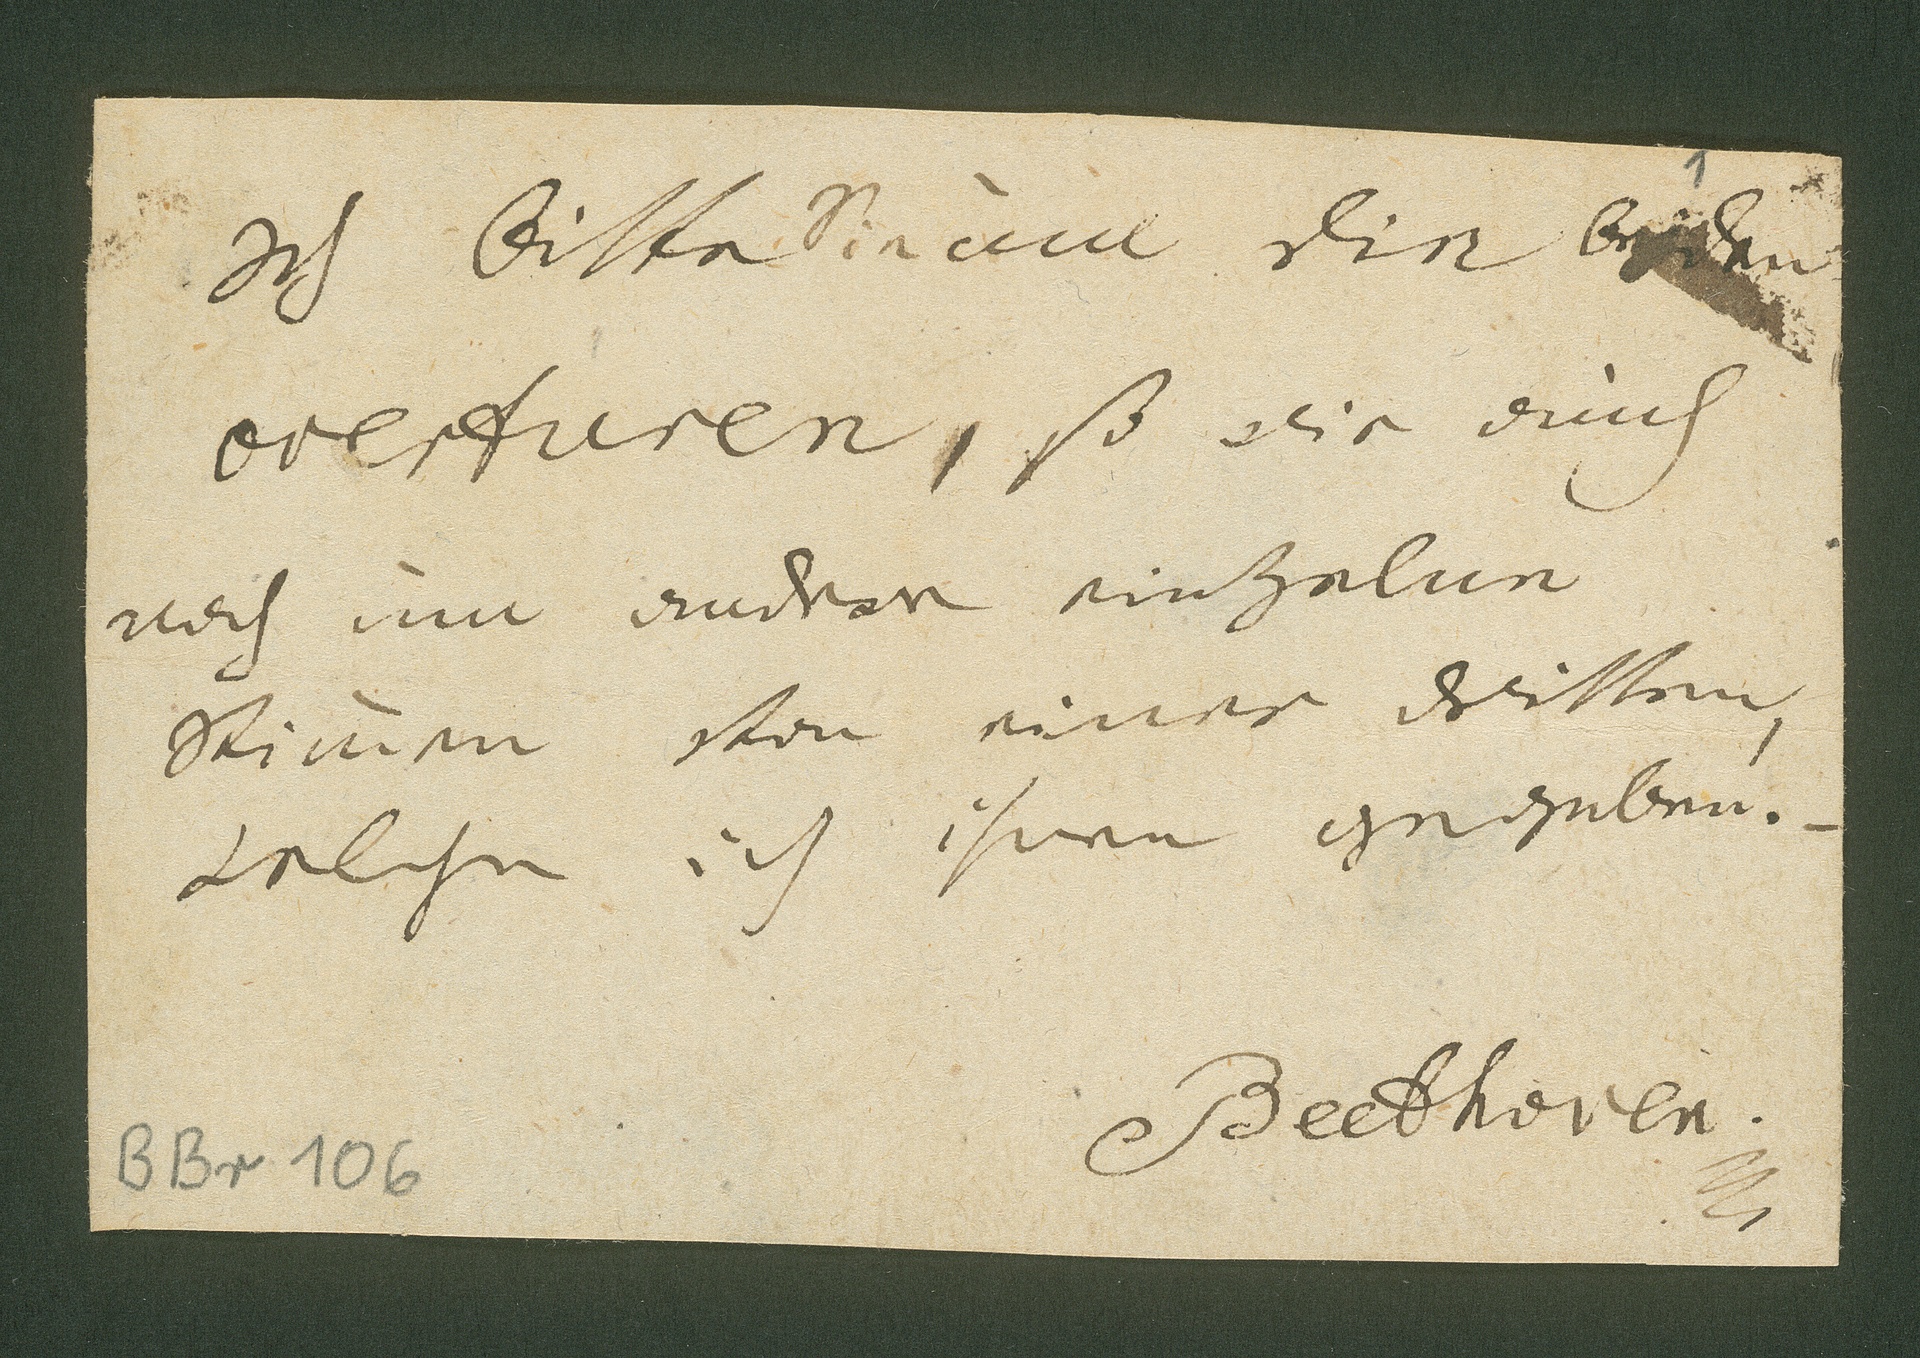 1
Ich bitte Sie um die beyden
overturen, so wie auch
noch um andere einzelne
Stim̅en von einer dritten,
welche ich ihnen gegeben. –
Beethoven.
BBr 106